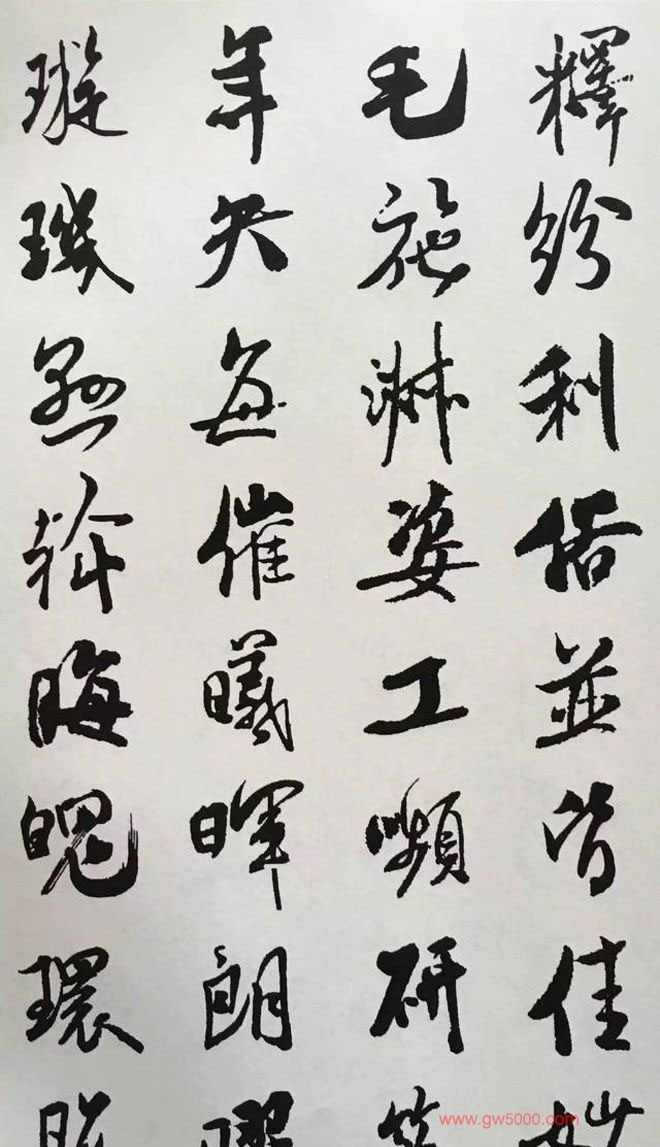 釋紛利俗並皆佳
毛施淑姿工嚬研
年矢每催曦暉朗
璇璣懸斡晦魄環
www.gw5000.com